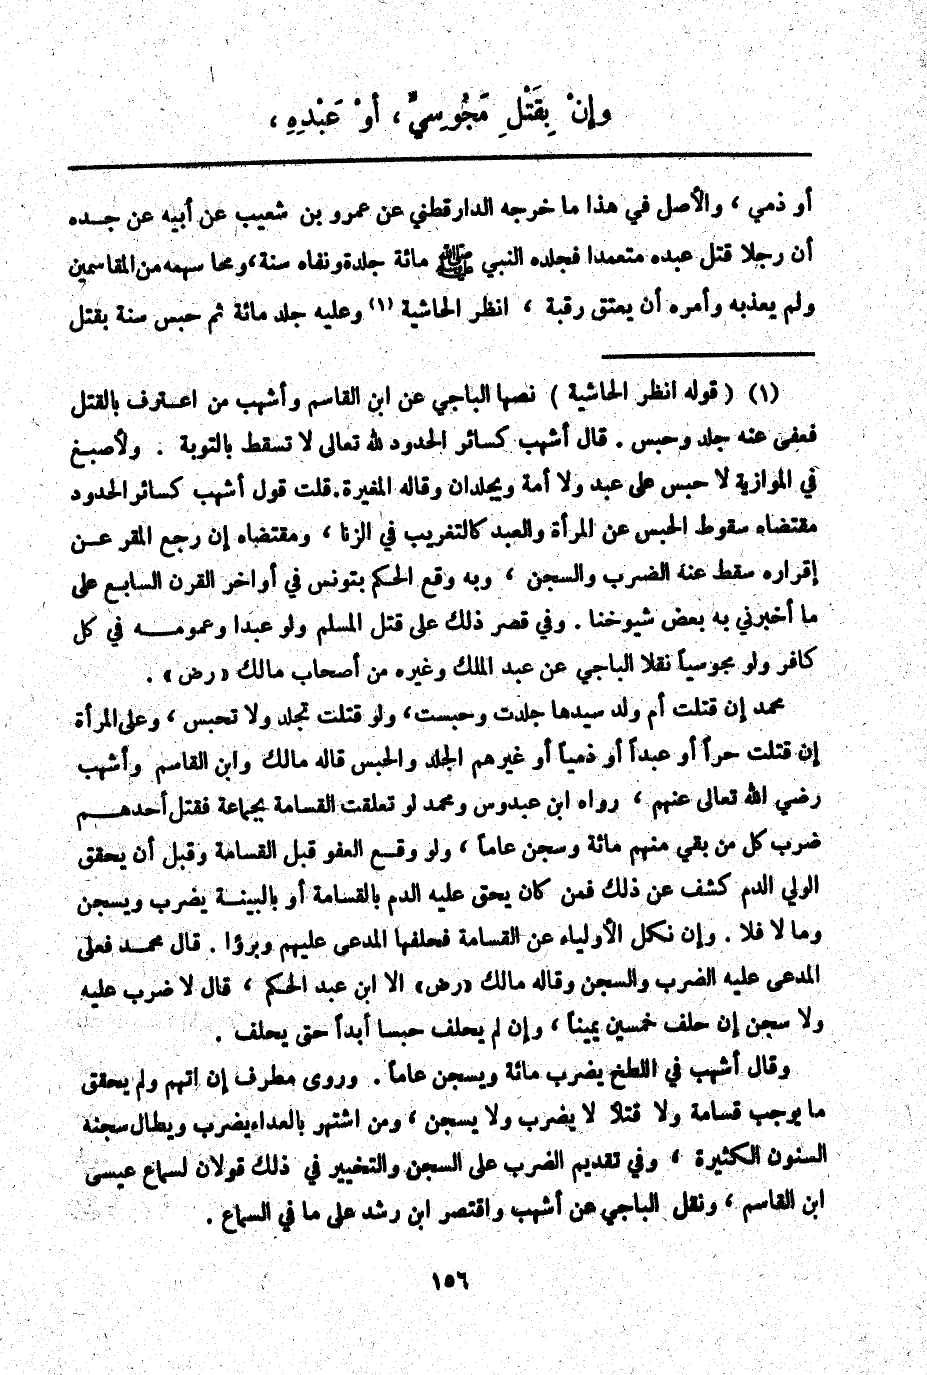 وإنْ بِقَتْلِ مَجُوسِيٍّ، أوْ عَبْدِهِ،
أو ذمي ، والأصل في هذا ما خرجه الدارقطني عن عمرو بن شعيب عن أبيه عن جــده
أن رجلا قتل عبده متعمدا فجلده النبي ﷺ مائة جلدة ونفاه سنة، ومحا سهمه من المقاسمين
ولم يعذبه وأمره أن يعتق رقبة ، انظر الحاشية (١) وعليه جلد مائة ثم حبس سنة بقتل
(١) ( قوله انظر الحاشية ) نصها الباجي عن ابن القاسم وأشهب من اعــترف بالقتل
فعفى عنه جلد وحبس . قال أشهب كسائر الحدود لله تعالى لا تسقط بالتوبة . ولأصبــغ
في الموازية لا حبس على عبد ولا أمة ويجلدان وقاله المغيرة. قلت قول أشهب كسائر الحدود
مقتضاه سقوط الحبس عن المرأة والعبد كالتغريب في الزنا ، ومقتضاه إن رجع المقر عــن
إقراره سقط عنه الضرب والسجن ، وبه وقع الحكم بتونس في أواخر القرن السابــع على
ما أخبرني به بعض شيوخنا . وفي قصر ذلك على قتل المسلم ولو عبدا وعمومــــه في كل
كافر ولو مجوسياً نقلا الباجي عن عبد الملك وغيره من أصحاب مالك « رض » .
محمد إن قتلت أم ولد سيدها جلدت وحبست، ولو قتلت تجلد ولا تحبس ، وعلى المرأة
إن قتلت حراً أو عبداً أو ذمياً أو غيرهم الجلد والحبس قاله مالك وابن القاسم وأشهب
رضي الله تعالى عنهم ، رواه ابن عبدوس ومحمد لو تعلقت القسامة بجماعة فقتل أحدهــــم
ضرب كل من بقي منهم مائة وسجن عاماً ، ولو وقــع العفو قبل القسامة وقبل أن يحقق
الولي الدم كشف عن ذلك فمن كان يحق عليه الدم بالقسامة أو بالبينــة يضرب ويسجن
وما لا فلا . وإن نكل الأولياء عن القسامة فحلفها المدعى عليهم وبرؤا . قال محمــد فعلى
المدعى عليه الضرب والسجن وقاله مالك «رض» الا ابن عبد الحكم ، قال لا ضرب عليه
ولا سجن إن حلف خمسين يميناً ، وإن لم يحلف حبسا أبداً حتى يحلف .
وقال أشهب في اللطخ يضرب مائة ويسجن عاماً . وروى مطرف إن اتهم ولم يحقق
ما يوجب قسامة ولا قتلاً لا يضرب ولا يسجن ، ومن اشتهر بالعداء يضرب ويطال سجنه
السنون الكثيرة ، وفي تقديم الضرب على السجن والتخيير في ذلك قولان لسماع عيسى
ابن القاسم ، ونقل الباجي عن أشهب واقتصر ابن رشد على ما في السماع .
١٥٦